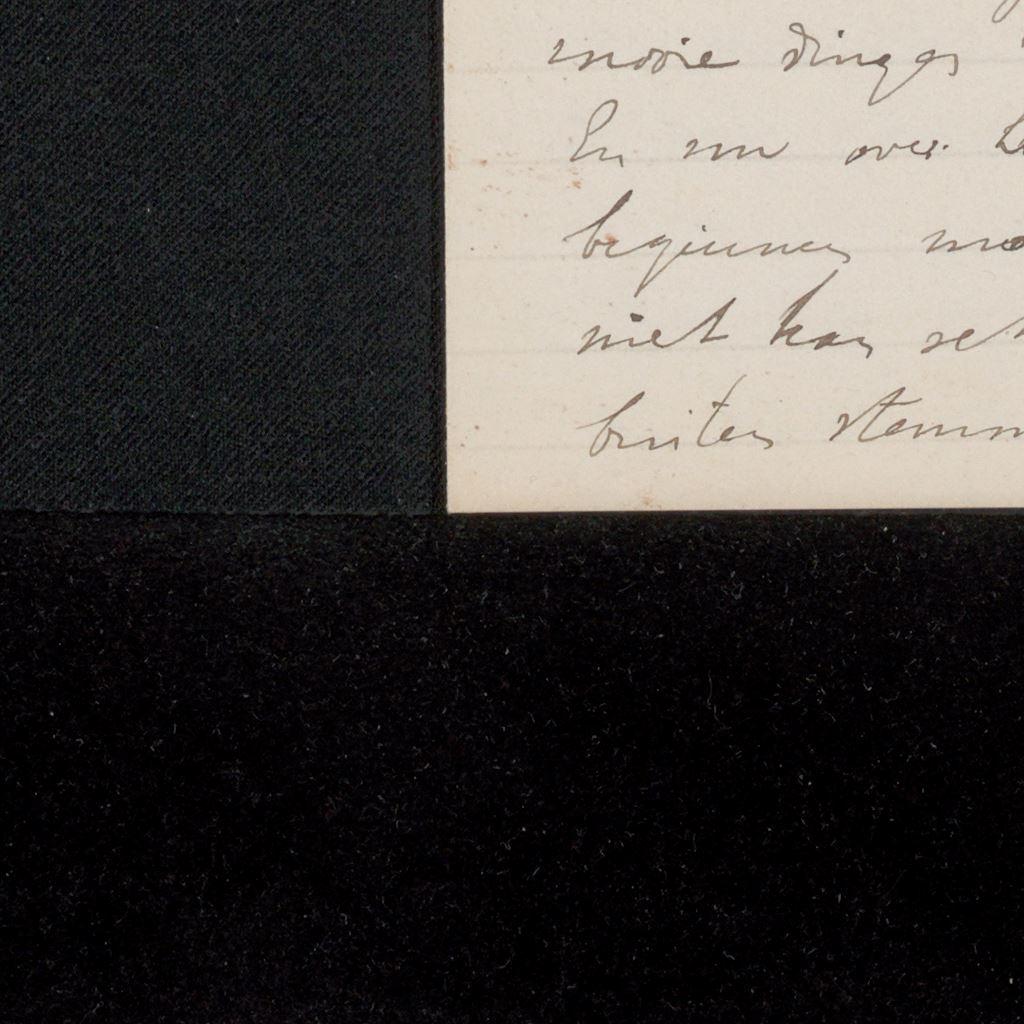 mooie dingen
En nu over
beginnen
niet kan
buiten